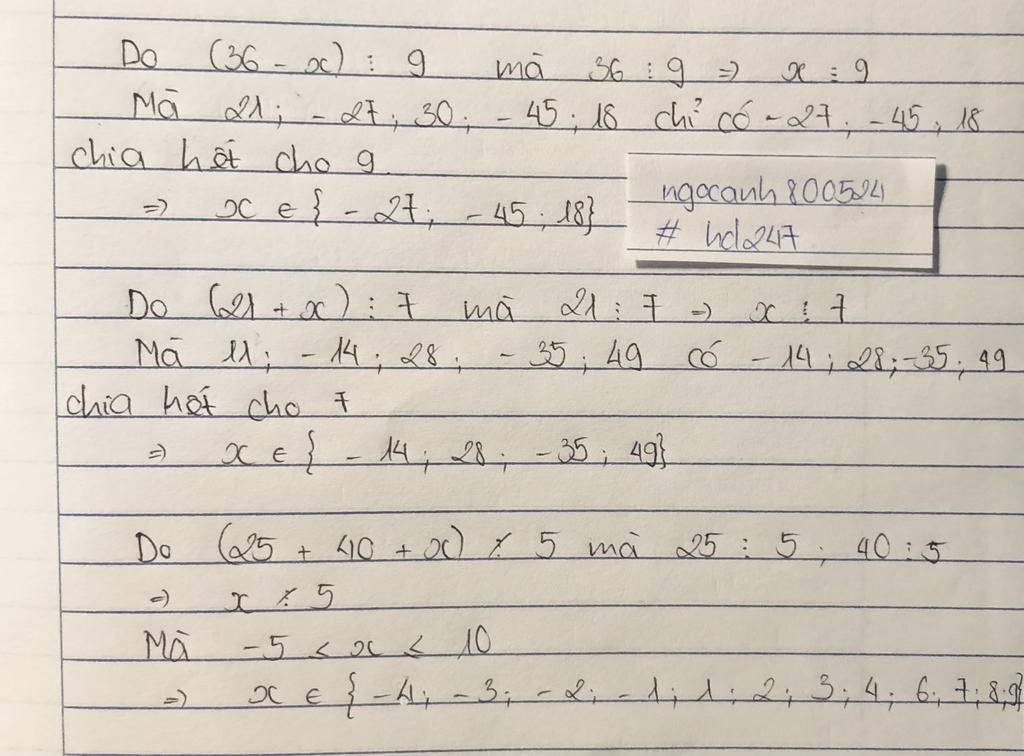 Do (36 - x) ⋮ 9 mà 36 ⋮ 9 => x ⋮ 9
Mà 21; - 27; 30; - 45; 18 chỉ có - 27; - 45; 18
chia hết cho 9
=> x ∈ { - 27; - 45; 18}
ngocanh800524
# hd247
Do (21 + x) ⋮ 7 mà 21 ⋮ 7 => x ⋮ 7
Mà 11; - 14; 28; - 35; 49 có - 14; 28; -35; 49
chia hết cho 7
=> x ∈ { - 14; 28; -35; 49}
Do (25 + 40 + x) ⋮̸ 5 mà 25 ⋮ 5; 40 ⋮ 5
=> x ⋮̸ 5
Mà -5 < x < 10
=> x ∈ { -4; -3; -2; -1; 1; 2; 3; 4; 6; 7; 8; 9}